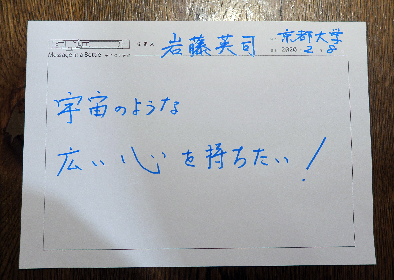 岩藤英司
京都大学
2020 2.8
Message in a Bottle
宇宙のような
広い心を持ちたい!